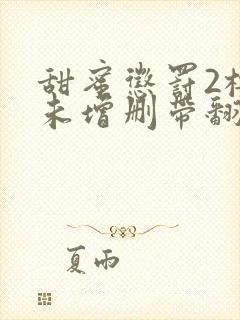 甜蜜惩罚2樱
未增删带翻
夏雨